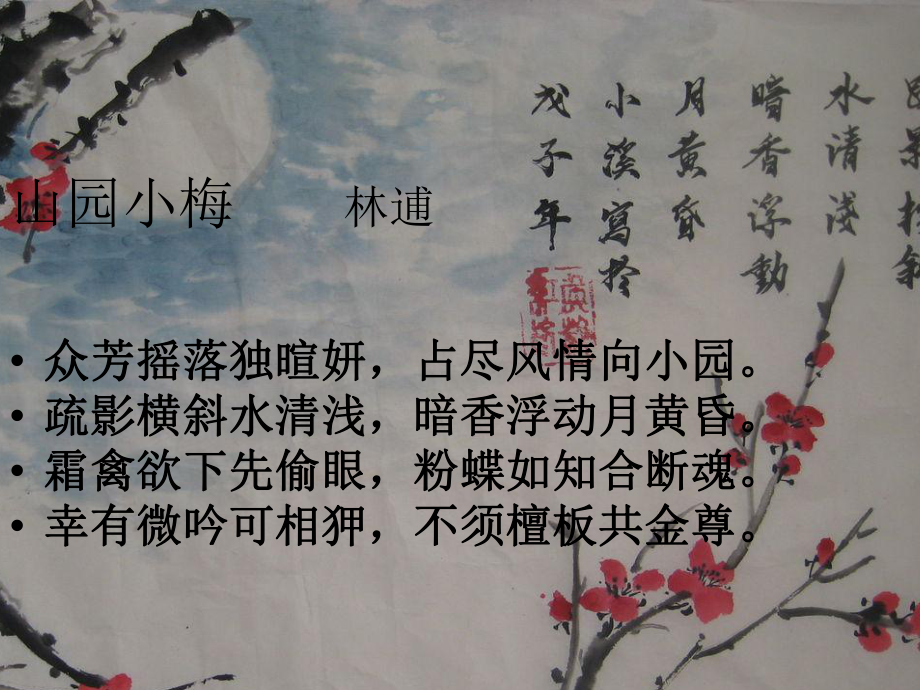 山园小梅 林逋
• 众芳摇落独暄妍，占尽风情向小园。
• 疏影横斜水清浅，暗香浮动月黄昏。
• 霜禽欲下先偷眼，粉蝶如知合断魂。
• 幸有微吟可相狎，不须檀板共金尊。
水清淺
暗香浮動
月黄昏
小溪寫扵
戊子年